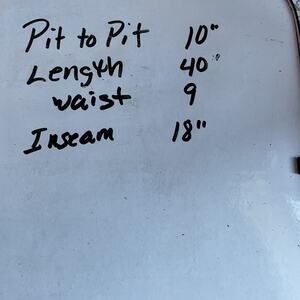 Pit to Pit 10"
Length 40"
waist 9
Inseam 18"